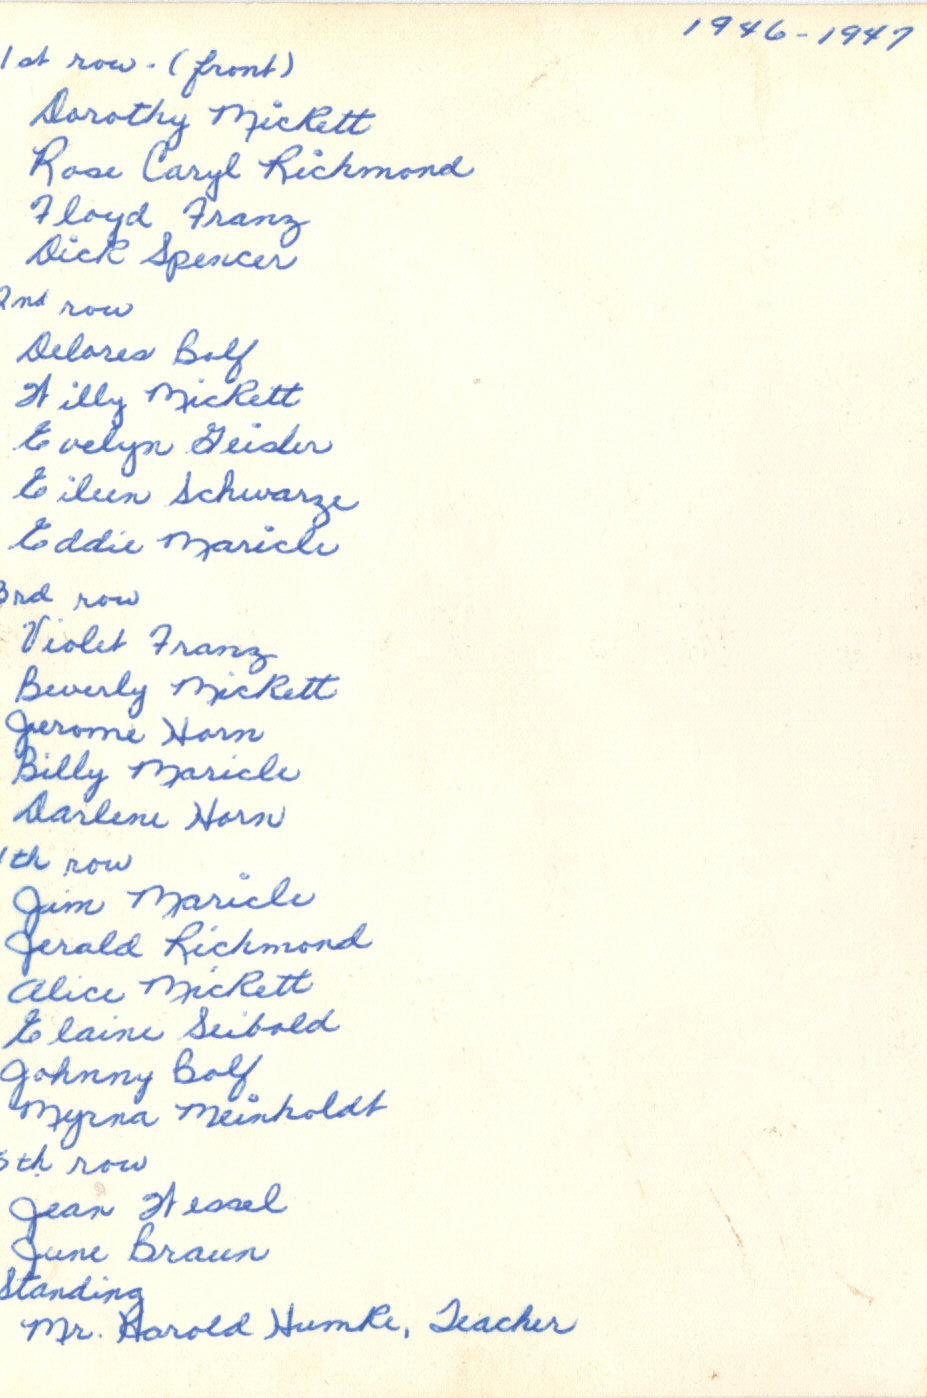 1946-1947
1st row - (front)
Dorothy Mickett
Rose Caryl Richmond
Floyd Franz
Dick Spencer
2nd row
Delores Bolf
Willy Mickett
Evelyn Geisler
Eileen Schwarze
Eddie Maricle
3rd row
Violet Franz
Beverly Mickett
Jerome Horn
Billy Maricle
Darlene Horn
4th row
Jim Maricle
Jerald Richmond
Alice Mickett
Elaine Seibold
Johnny Bolf
Myrna Meinholdt
5th row
Jean Wessel
June Braun
Standing
Mr. Harold Humke, Teacher